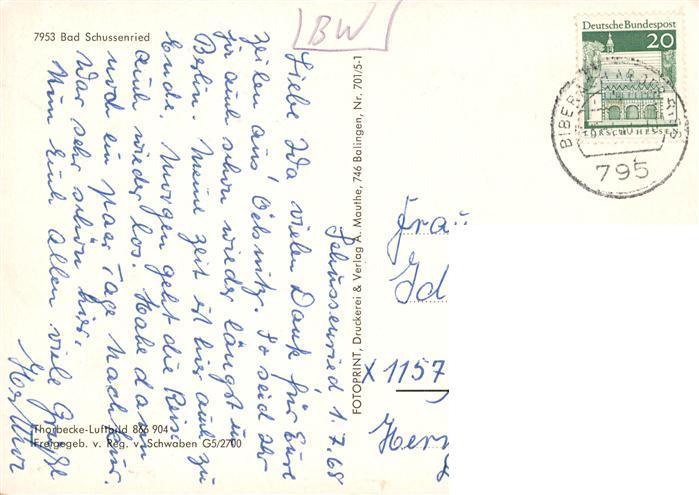 7953 Bad Schussenried
BW
Deutsche Bundespost
20
LORSCH/HESSEN
795
Schussenried 1.7.68
Liebe Ida vielen Dank für Eure
Zeilen aus Oelsnitz. So seid Ihr
ja auch schon wieder längst in
Berlin. Meine Zeit ist hier auch zu
Ende. Morgen geht die Reise
auch wieder los. Habe dann
noch ein paar Tage Nachkur.
War sehr schön hier.
Nun Euch allen viele Grüße
FOTOPRINT, Druckerei & Verlag A. Mauthe, 746 Balingen, Nr. 701/5-1
Frau
Id
X 1157
Her
Thorbecke-Luftbild 866 904
Freigegeb. v. Reg. v. Schwaben G5/2700